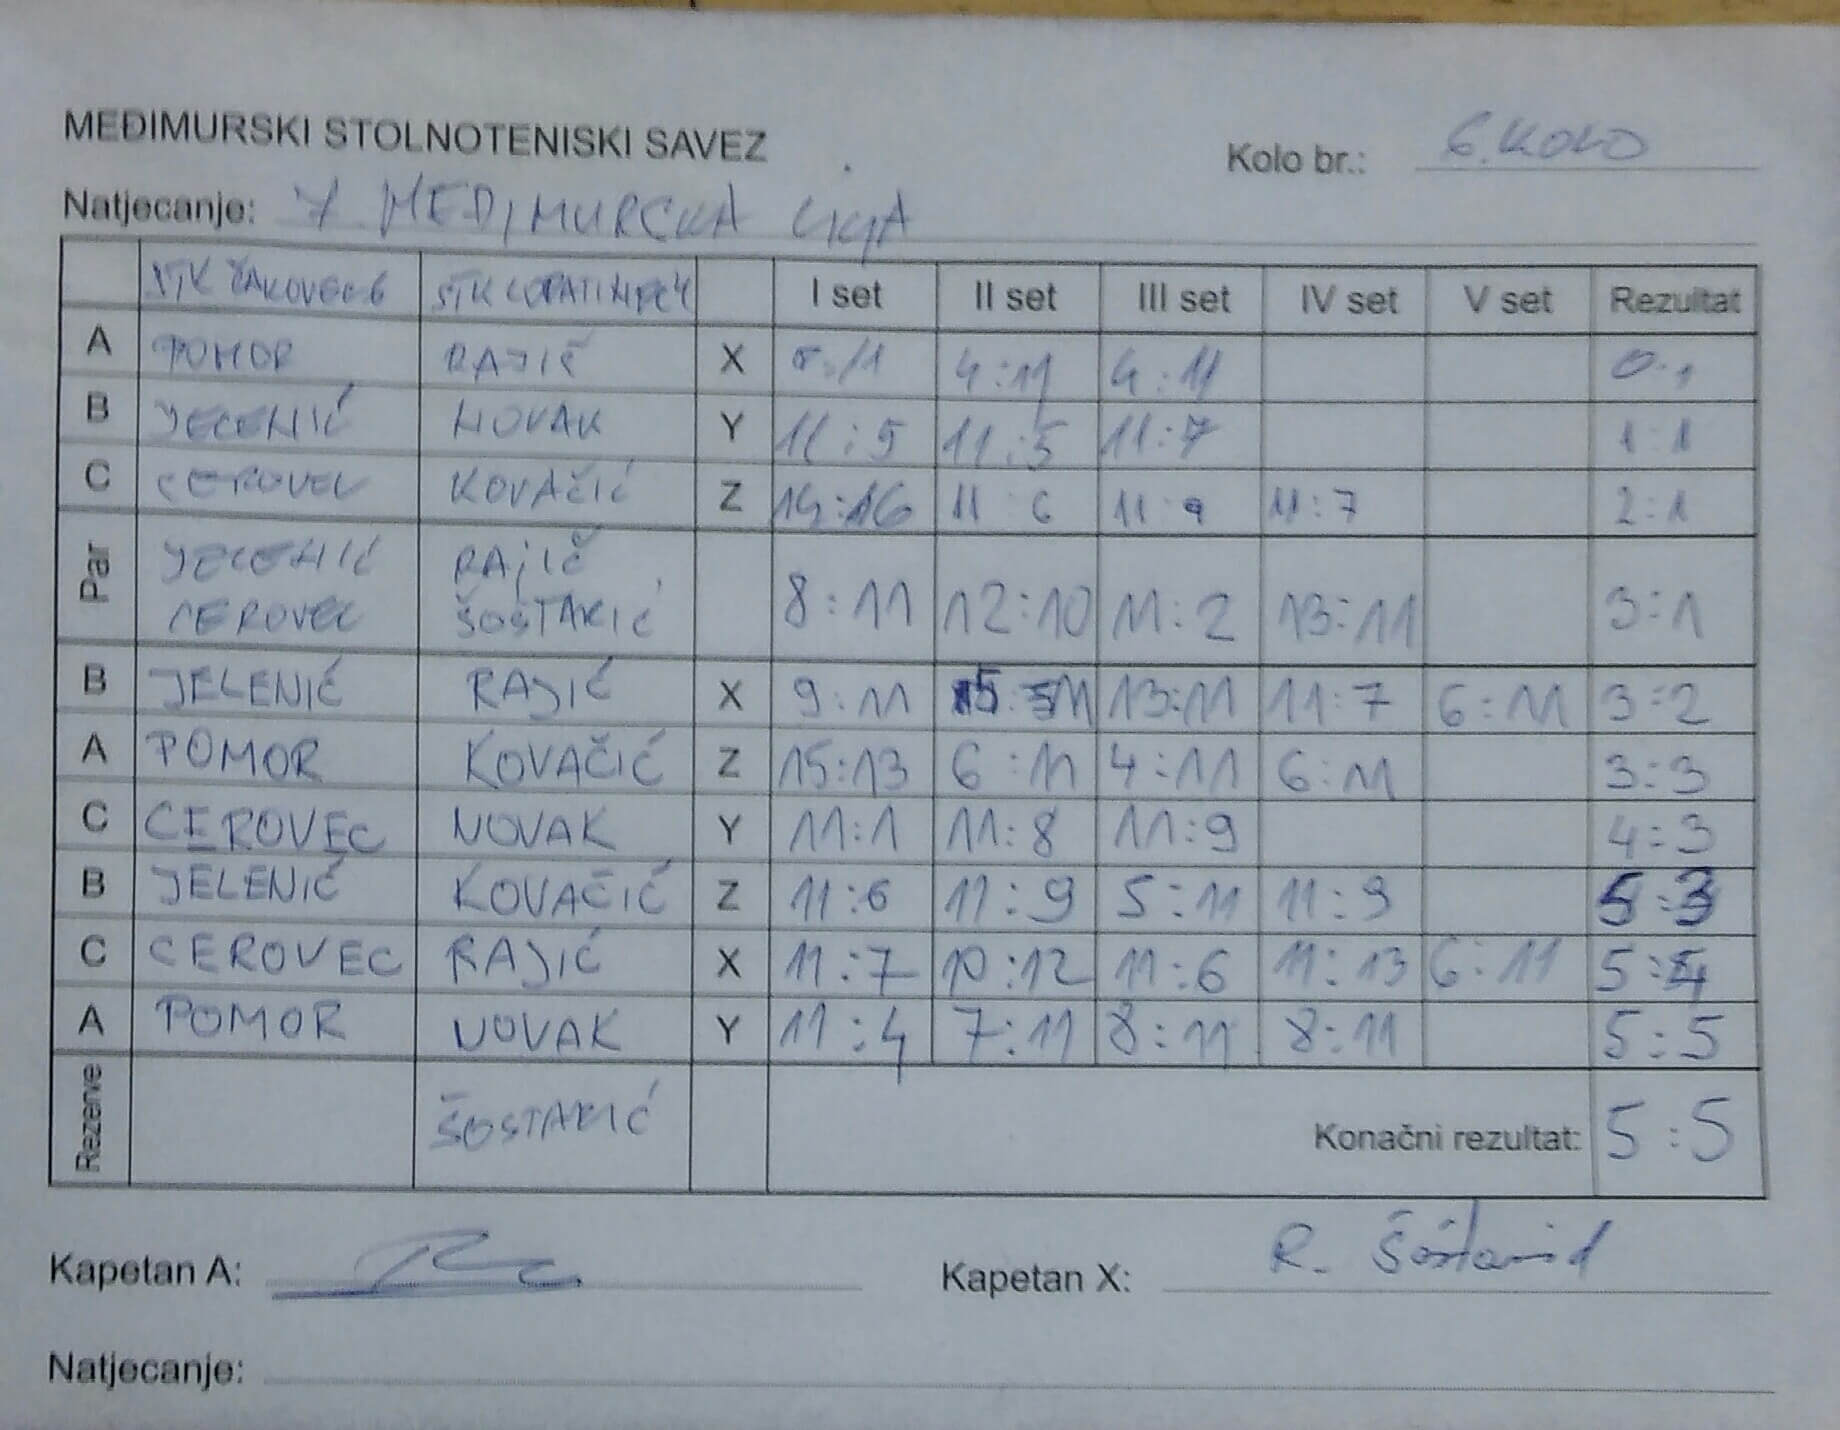 MEĐIMURSKI STOLNOTENISKI SAVEZ
Kolo br.: 6. KOLO
Natjecanje: MEDIMURCKA LIGA
STK ČAKOVEC 6 STK I set II set III set IV set V set Rezultat
A POMOR RAJIČ X 4:11 4:11 0:1
B JELENIĆ NOVAK Y 11:5 11:5 11:7 1:1
C CEROVEC KOVAČIĆ Z 14:16 11 6 11:9 11:7 2:1
Par JELENIĆ RAJIČ
CEROVEC ŠOSTARIĆ 8:11 12:10 11:2 13:11 3:1
B JELENIĆ RAJIĆ X 9:11 5:11 13:11 11:7 6:11 3:2
A POMOR KOVAČIĆ Z 15:13 6:11 4:11 6:11 3:3
C CEROVEC NOVAK Y 11:1 11:8 11:9 4:3
B JELENIĆ KOVAČIĆ Z 11:6 11:9 5:11 11:9 5:3
C CEROVEC RAJIĆ X 11:7 10:12 11:6 11:13 6:11 5:4
A POMOR NOVAK Y 11:4 7:11 8:11 8:11 5:5
Rezerve ŠOSTARIĆ Konačni rezultat: 5:5
Kapetan A: Kapetan X: R. Šoštarić
Natjecanje: